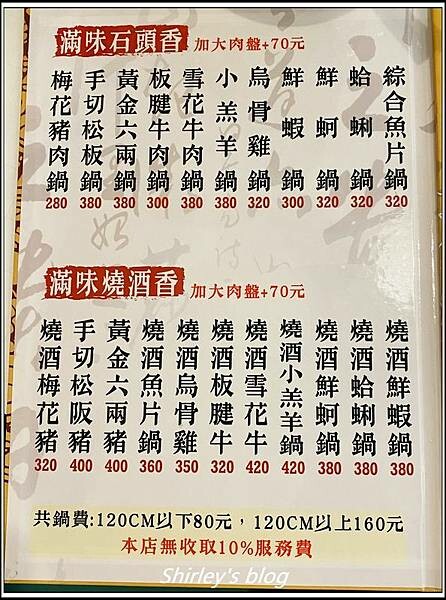 滿味石頭香 加大肉盤+70元
梅花豬肉鍋 280
手切松板鍋 380
黃金六兩鍋 380
板腱牛肉鍋 300
雪花牛肉鍋 380
小羔羊鍋 380
烏骨雞鍋 320
鮮蝦鍋 300
鮮蚵鍋 320
蛤蜊鍋 320
綜合魚片鍋 320
滿味燒酒香 加大肉盤+70元
燒酒梅花豬 320
手切松阪豬 400
黃金六兩豬 400
燒酒魚片鍋 360
燒酒烏骨雞 350
燒酒板腱牛 320
燒酒雪花牛 420
燒酒小羔羊鍋 420
燒酒鮮蚵鍋 380
燒酒蛤蜊鍋 380
燒酒鮮蝦鍋 380
共鍋費:120CM以下80元，120CM以上160元
本店無收取10%服務費
Shirley's blog